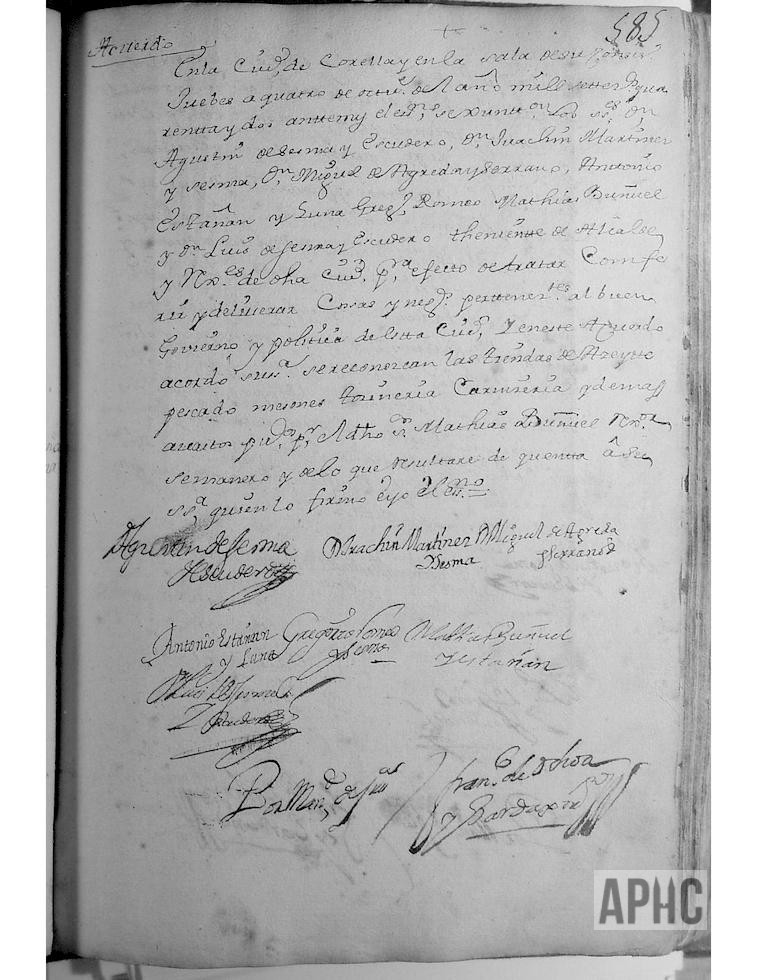 585
Acuerdo
En la Ciud, de Corella y en la sala de su
Juebes a quatro de octue. del año mill setteª qua
rentta y dos anttemy el esnº. se xuntton. Los sses. Dn,
Agustin de Sesma y Escudero, Dn, Juachin Martinez
y Sesma, Dn, Miguel de Agreda y Serrano, Anttonio
Estañan y Luna Gregº, Romeo Mathias Buñuel
y Dn, Luis de Sesma y Escudero theniente de Alcalde
y Rres. de dha Ciud. pª, efecto de tratar Comfe
rir y deliverar Cosas y negº. perttenentes. al buen
Govierno y politica de estta Ciud, Y en este Aquerdo
acordó sussª. se reconozcan las tiendas de Azeytte
pescado mesones tozineria Carnizeria y demas
avasttos pucos. pr. el dho sr. Mathias Buñuel Rror.
semanero y de lo que resultare de quentta â su
ssª, quien lo firmo e yo el essno =
Agustin de Sesma
Y Escudero
Dn Juachin Martinez
Y Sesma
Dn Miguel de Agreda
y Serrano
Antonio Estañan
y Luna
Gregorio Romeo
Mathias Buñuel
Y Estañan
Dn Luis de Sesma
Y Escudero
Por Mandº de su sª
Franco. de Ochoa
y Gardachº
APHC